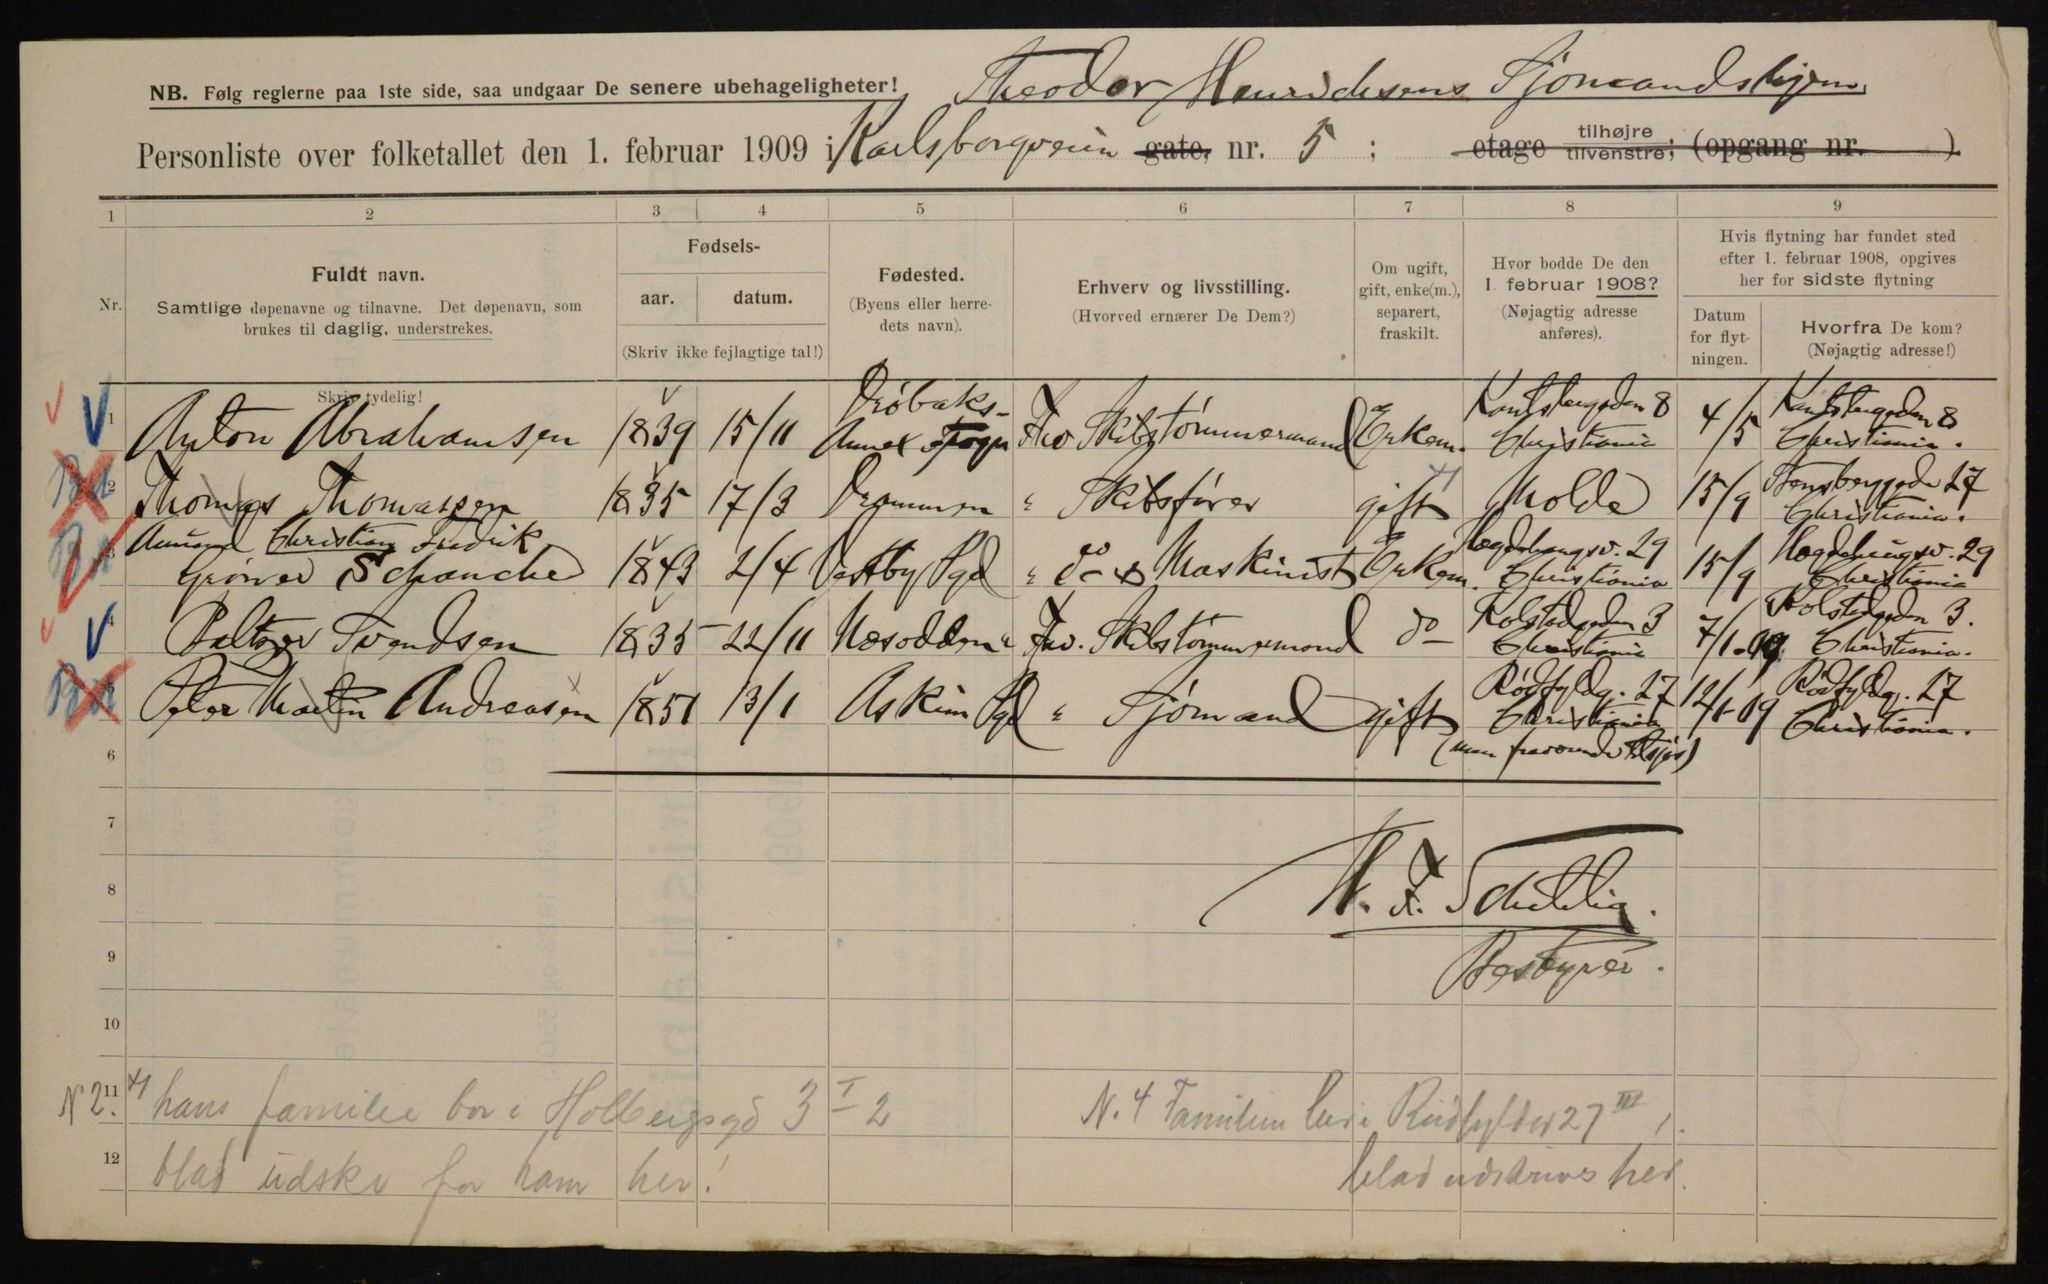 Theodor Henrichsens Sjømandshjem
NB. Følg reglerne paa 1ste side, saa undgaar De senere ubehageligheter!
Personliste over folketallet den 1. februar 1909 i Karlsborgveien gate, nr. 5 ; etage tilhøjre tilvenstre; (opgang nr. ).
1 2 3 4 5 6 7 8 9
Nr.
Fuldt navn.
Samtlige døpenavne og tilnavne. Det døpenavn, som
brukes til daglig, understrekes.
Skriv tydelig!
Fødsels-
aar. datum.
(Skriv ikke fejlagtige tal!)
Fødested.
(Byens eller herre-
dets navn).
Erhverv og livsstilling.
(Hvorved ernærer De Dem?)
Om ugift,
gift, enke(m.),
separert,
fraskilt.
Hvor bodde De den
1 februar 1908?
(Nøjagtig adresse
anføres).
Hvis flytning har fundet sted
efter 1. februar 1908, opgives
her for sidste flytning
Datum
for flyt-
ningen.
Hvorfra De kom?
(Nøjagtig adresse!)
1 Anton Abrahamsen 1839 15/11 Drøbaks- Annex Skibstømmermand Enkem. 8 Christiania 4/5 8 Christiania.
2 Thomas Thomassen 1835 17/3 Drammen " Skibsfører gift Molde 15/9 Stensberggade 27 Christiania.
3 Christian Fredrik
Grøner Schanche 1843 2/4 Vestby Pgd " do Maskinist Enkem. Hegdehaugsv. 29 Christiania 15/9 Hegdehaugsv. 29 Christiania
4 Baltzer Svendsen 1835 22/11 Næsodden Skibstømmermand do Kolstadgaden 3 Christiania 7/1-09 Kolstadgaden 3. Christiania.
5 Peter Martin Andreasen 1851 13/1 Askim Pgd " Sjømand gift Rødfyldg. 27 Christiania 12/1-09 Rødfyldg. 27 Christiania.
6 (men fraværende tilsjøs)
7
8
9 Bestyrer.
10
N 2. 11 hans familie bor i Holbergsgd 3 I 2
N. 4 Familien bor i 27 III 1.
12 blad udskr for ham her!
blad udskrives her.